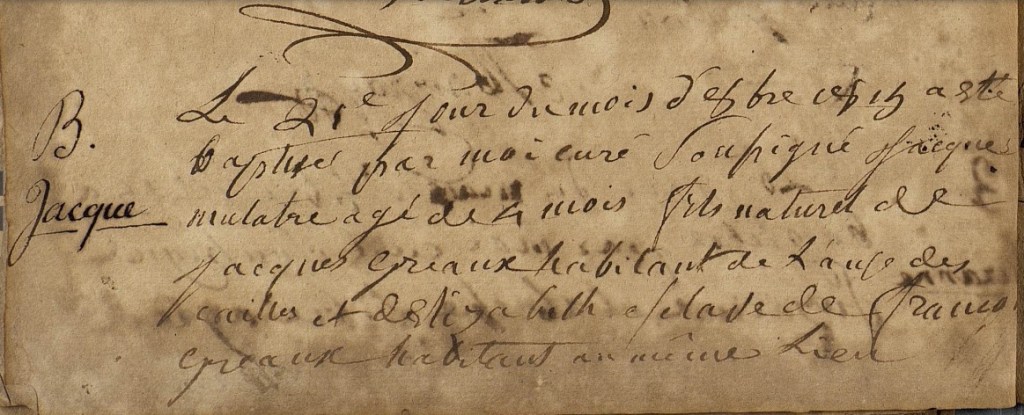 B.
Jacque
Le 21e jour du mois d'8bre 1815 a esté
baptisé par moi curé soussigné Jacques
mulatre agé de 4 mois fils naturel de
Jacques Greaux habitant de L'anse des
cailles et d'Elizabeth esclave de François
Greaux habitant au même Lieu